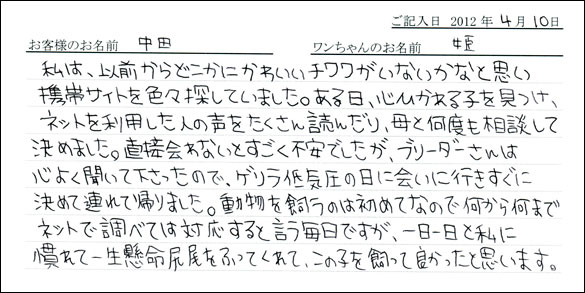 ご記入日 2012年4月10日
お客様のお名前 中田 ワンちゃんのお名前 姫
私は、以前からどこかにかわいいチワワがいないかなと思い
携帯サイトを色々探していました。ある日、心ひかれる子を見つけ、
ネットを利用した人の声をたくさん読んだり、母と何度も相談して
決めました。直接会わないとすごく不安でしたが、ブリーダーさんは
心よく聞いて下さったので、ゲリラ低気圧の日に会いに行きすぐに
決めて連れて帰りました。動物を飼うのは初めてなので何から何まで
ネットで調べては対応すると言う毎日ですが、一日一日と私に
慣れて一生懸命尻尾をふってくれて、この子を飼って良かったと思います。